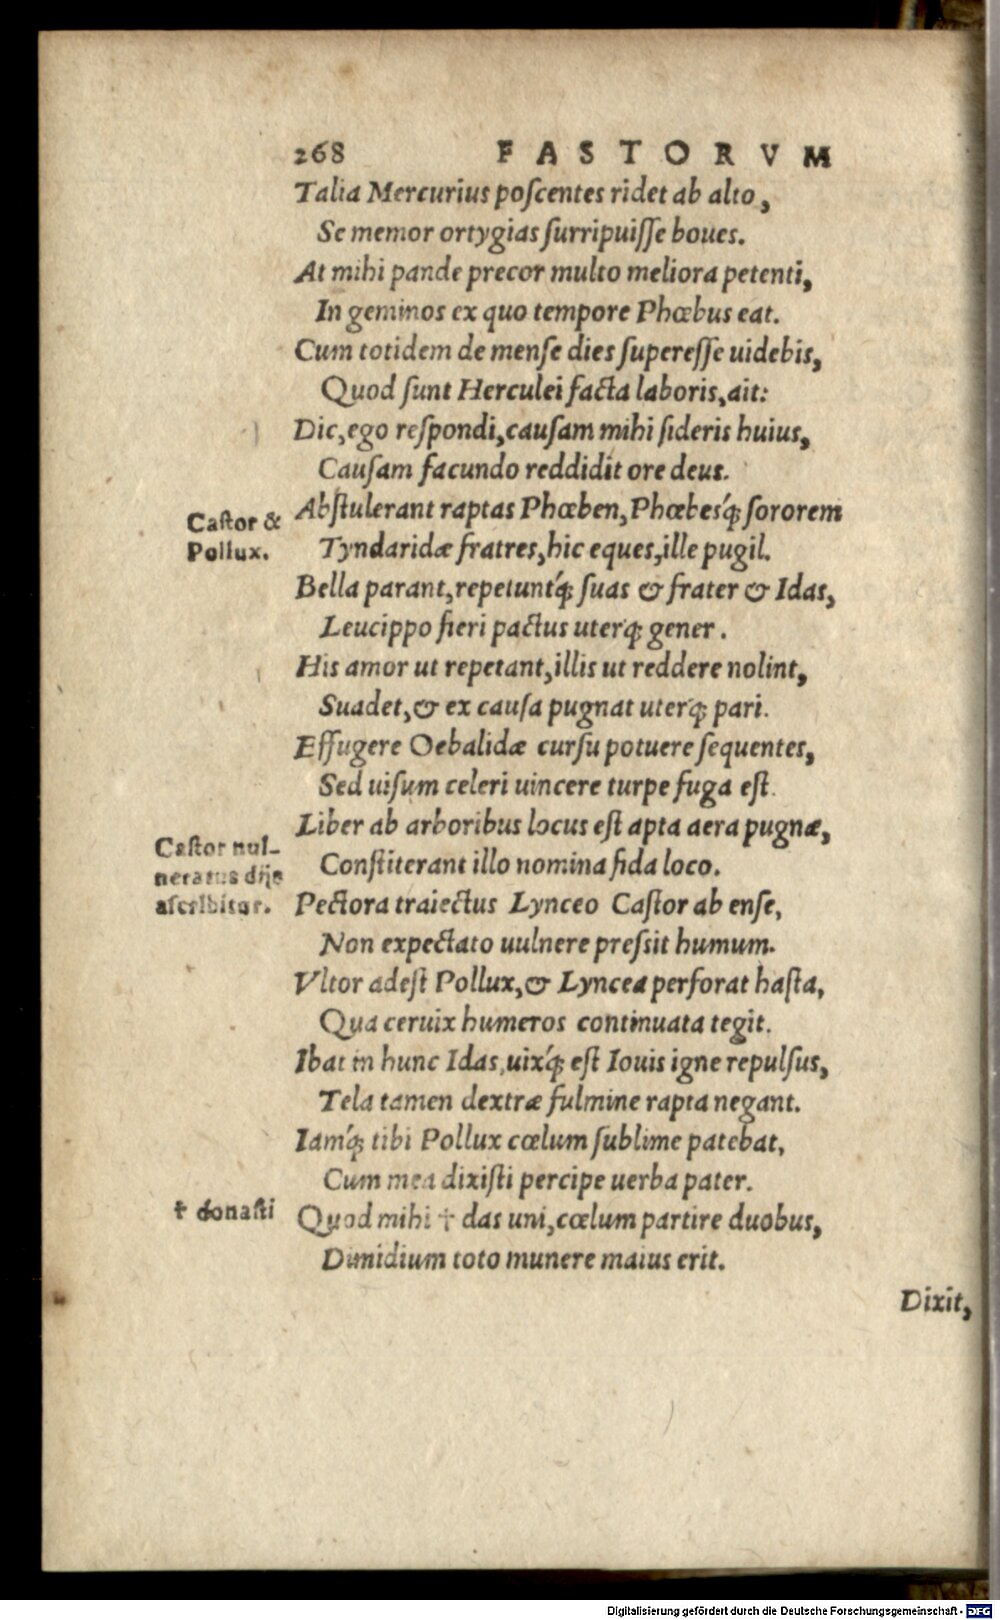 268 FASTORVM
Talia Mercurius poſcentes ridet ab alto,
Se memor ortygias ſurripuiſſe boues.
At mihi pande precor multo meliora petenti,
In geminos ex quo tempore Phœbus eat.
Cum totidem de menſe dies ſupereſſe uidebis,
Quod ſunt Herculei facta laboris, ait:
Dic, ego reſpondi, cauſam mihi ſideris huius,
Cauſam facundo reddidit ore deus.
Caſtor &
Pollux.
Abſtulerant raptas Phœben, Phœbesq́; ſororem
Tyndaridæ fratres, hic eques, ille pugil.
Bella parant, repetuntq́; ſuas & frater & Idas,
Leucippo fieri pactus uterq; gener.
His amor ut repetant, illis ut reddere nolint,
Suadet, & ex cauſa pugnat uterq; pari.
Effugere Oebalidæ curſu potuere ſequentes,
Sed uiſum celeri uincere turpe fuga eſt.
Liber ab arboribus locus eſt apta aera pugnæ,
Conſtiterant illo nomina fida loco.
Caſtor uul-
neratus dijs
aſcribitur.
Pectora traiectus Lynceo Caſtor ab enſe,
Non expectato uulnere preſsit humum.
Vltor adeſt Pollux, & Lyncea perforat haſta,
Qua ceruix humeros continuata tegit.
Ibat in hunc Idas, uixq́; eſt Iouis igne repulſus,
Tela tamen dextræ fulmine rapta negant.
Iamq́; tibi Pollux cœlum ſublime patebat,
Cum mea dixiſti percipe uerba pater.
† donaſti
Quod mihi † das uni, cœlum partire duobus,
Dimidium toto munere maius erit.
Dixit,
Digitalisierung gefördert durch die Deutsche Forschungsgemeinschaft - DFG